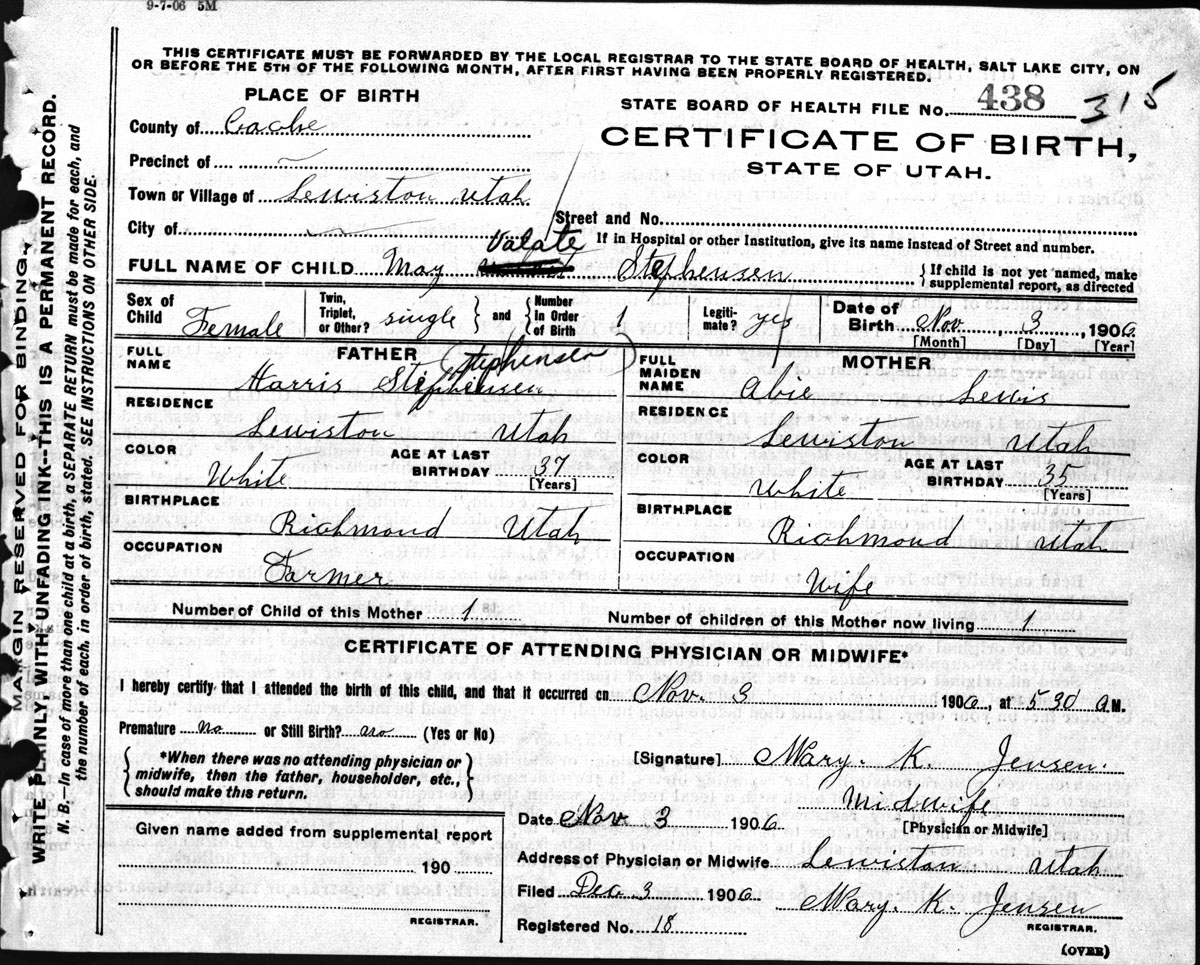 9-7-06 5M
THIS CERTIFICATE MUST BE FORWARDED BY THE LOCAL REGISTRAR TO THE STATE BOARD OF HEALTH, SALT LAKE CITY, ON
OR BEFORE THE 5TH OF THE FOLLOWING MONTH, AFTER FIRST HAVING BEEN PROPERLY REGISTERED.
PLACE OF BIRTH
STATE BOARD OF HEALTH FILE No. 438 315
County of Cache
CERTIFICATE OF BIRTH,
STATE OF UTAH.
Precinct of
Town or Village of Lewiston Utah
Street and No.
City of
If in Hospital or other Institution, give its name instead of Street and number.
Valate
FULL NAME OF CHILD May Stephensen
{ If child is not yet named, make
supplemental report, as directed
Sex of Child Female
Twin, Triplet, or Other? single } and { Number in Order of Birth 1
Legitimate? yes
Date of Birth Nov. 3, 1906
[Month] [Day] [Year]
FULL NAME FATHER (Stephensen)
Harris Stephensen
FULL MAIDEN NAME MOTHER
Abie Lewis
RESIDENCE
Lewiston Utah
RESIDENCE
Lewiston Utah
COLOR White
AGE AT LAST BIRTHDAY 37 [Years]
COLOR White
AGE AT LAST BIRTHDAY 35 [Years]
BIRTHPLACE
Richmond Utah
BIRTHPLACE
Richmond Utah
OCCUPATION
Farmer
OCCUPATION
Wife
Number of Child of this Mother 1 Number of children of this Mother now living 1
CERTIFICATE OF ATTENDING PHYSICIAN OR MIDWIFE*
I hereby certify that I attended the birth of this child, and that it occurred on Nov. 3 1906, at 5 30 A.M.
Premature no or Still Birth? no (Yes or No)
{ *When there was no attending physician or
midwife, then the father, householder, etc.,
should make this return. }
[Signature] Mary. K. Jensen.
Midwife
[Physician or Midwife]
Date Nov. 3 1906
Given name added from supplemental report
190
REGISTRAR.
Address of Physician or Midwife Lewiston Utah
Filed Dec. 3 1906 Mary. K. Jensen
REGISTRAR.
Registered No. 18
(OVER)
MARGIN RESERVED FOR BINDING.
WRITE PLAINLY WITH UNFADING INK--THIS IS A PERMANENT RECORD.
N. B.—In case of more than one child at a birth, a SEPARATE RETURN must be made for each, and
the number of each, in order of birth, stated. SEE INSTRUCTIONS ON OTHER SIDE.